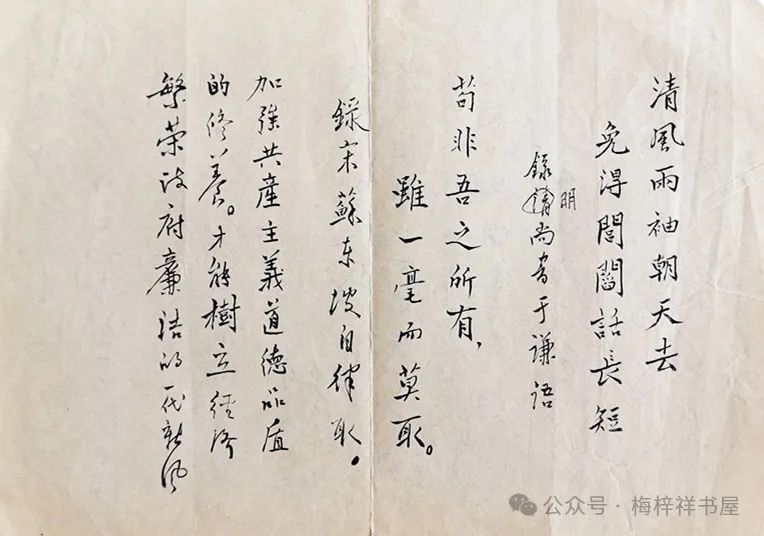 清風兩袖朝天去
免得閭閻話長短
錄明尚書于謙語
苟非吾之所有，
雖一毫而莫取。
錄宋蘇东坡自律耿。
加强共産主義道德品质
的修養。才能樹立經济
繁荣政府廉洁的一代新风
公众号 · 梅梓祥书屋